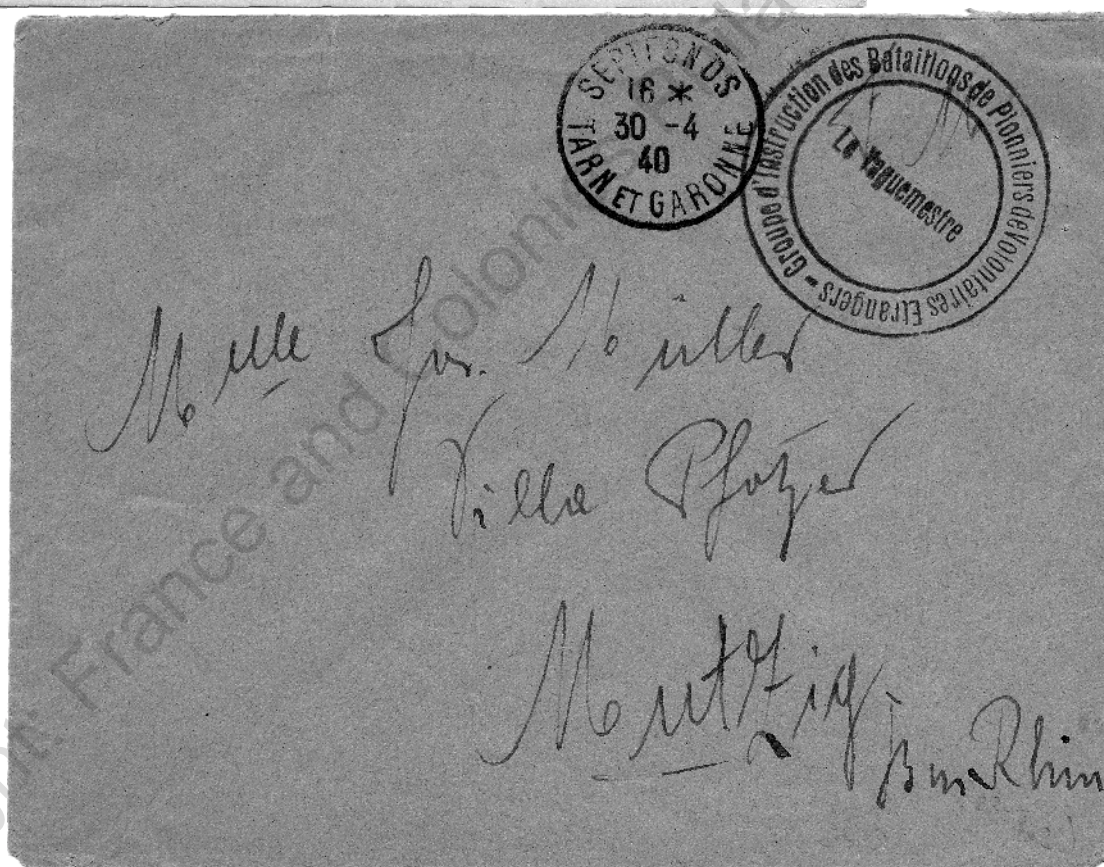 SEPTFONDS
16 *
30 -4
40
TARN ET GARONNE
Groupe d'Instruction des Bataillons de Pionniers de Volontaires Etrangers -
Le Vaguemestre
Melle Jos. Müller
Villa Pfotzer
Mutzig
Bas Rhin
France and Colonies